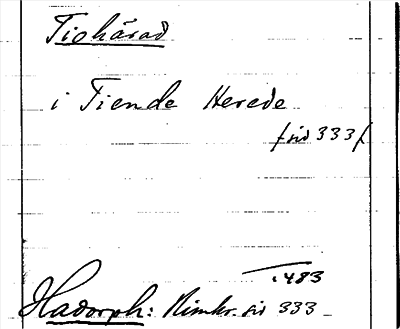 Tiohärad
i Tiende Herede
/sid 333/
1483
Hadorph: Rimkr. sid 333